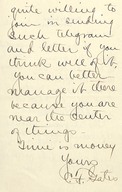 quite willing to
join in sending
such telegram
and letter if you
think well of it,
you can better
manage it there
because you are
near the center
of things.
Time is money
Yours
Gates